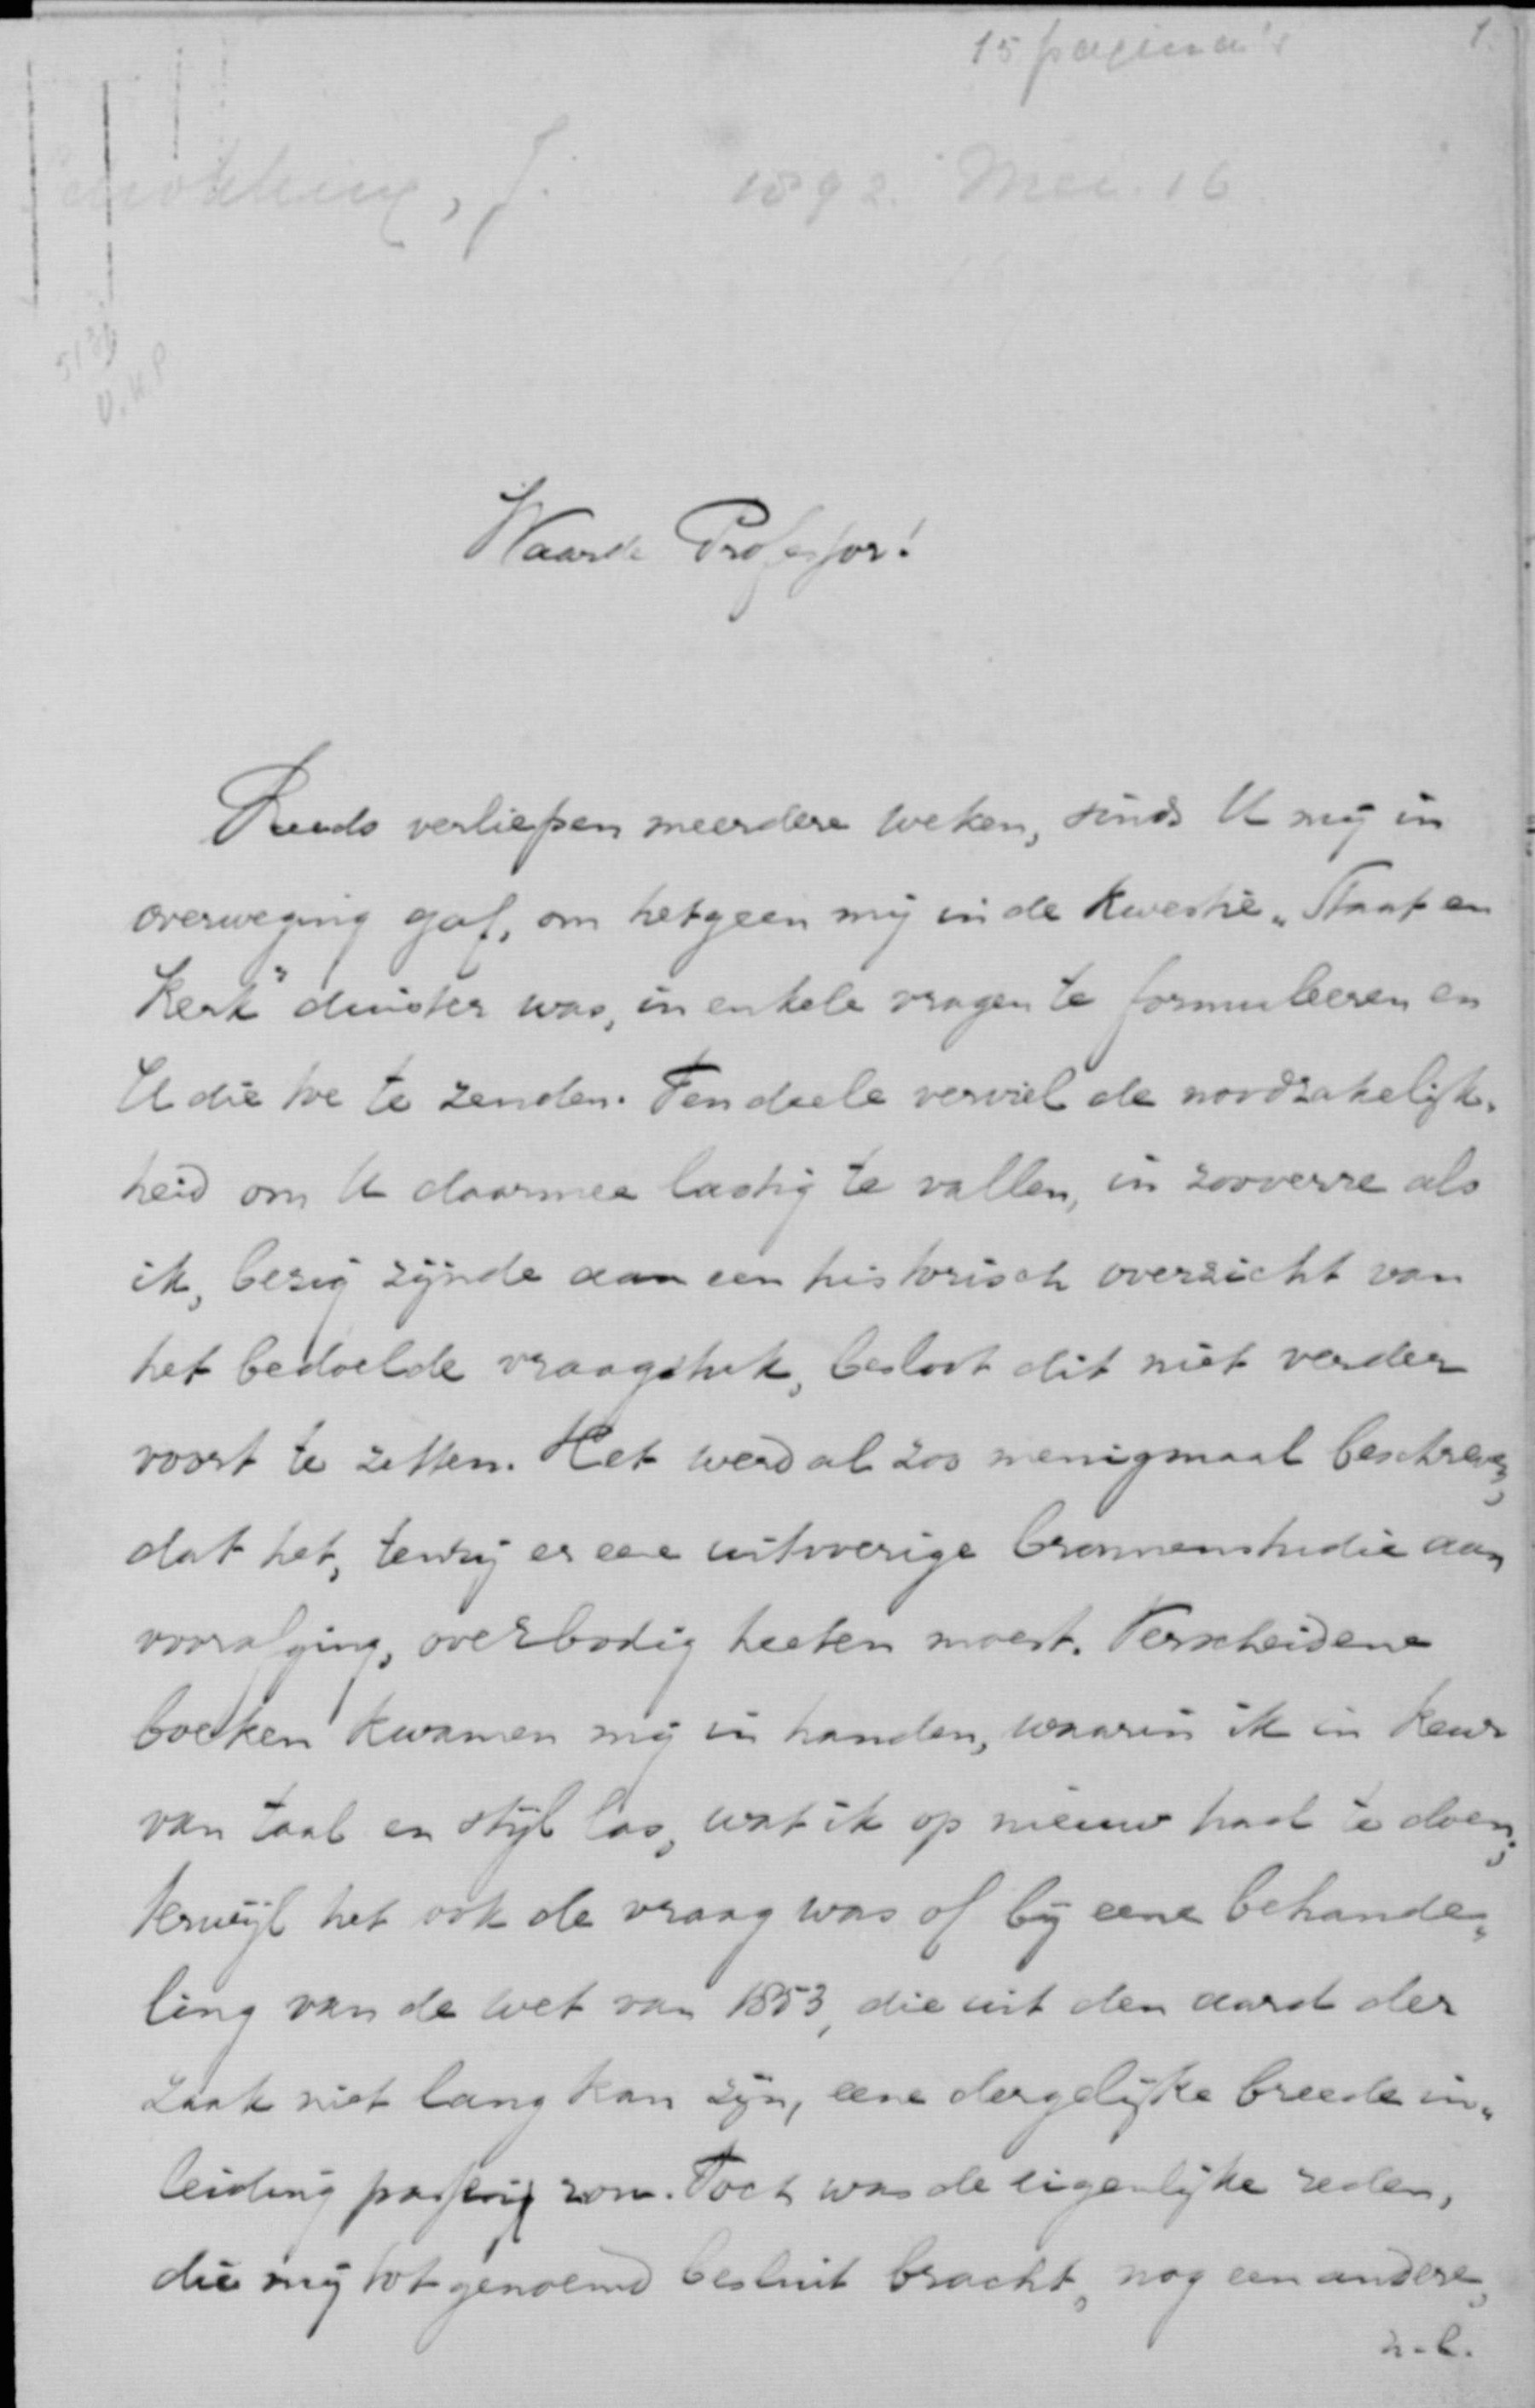 15 pagina's 1.
J. 1892. Mei. 16
Waarde Professor!
Reeds verliepen meerdere weken, sinds U mij in
overweging gaf, om hetgeen mij in de kwestie „Staat en
Kerk" duister was, in enkele vragen te formuleeren en
U die toe te zenden. Ten deele verviel de noodzakelijk„
heid om U daarmee lastig te vallen, in zooverre als
ik, bezig zijnde aan een historisch overzicht van
het bedoelde vraagstuk, besloot dit niet verder
voort te zetten. Het werd al zoo menigmaal beschreven,
dat het, tenzij er eene uitvoerige bronnenstudie aan
voorafging, overbodig heeten moest. Verscheidene
boeken kwamen mij in handen, waarin ik in keur
van taal en stijl las, wat ik op nieuw had te doen;
terwijl het ook de vraag was of bij eene behande„
ling van de wet van 1853, die uit den aard der
zaak niet lang kan zijn, eene dergelijke breede in„
leiding passen zou. Toch was de eigenlijke reden,
die mij tot genoemd besluit bracht, nog een andere,
n.l.